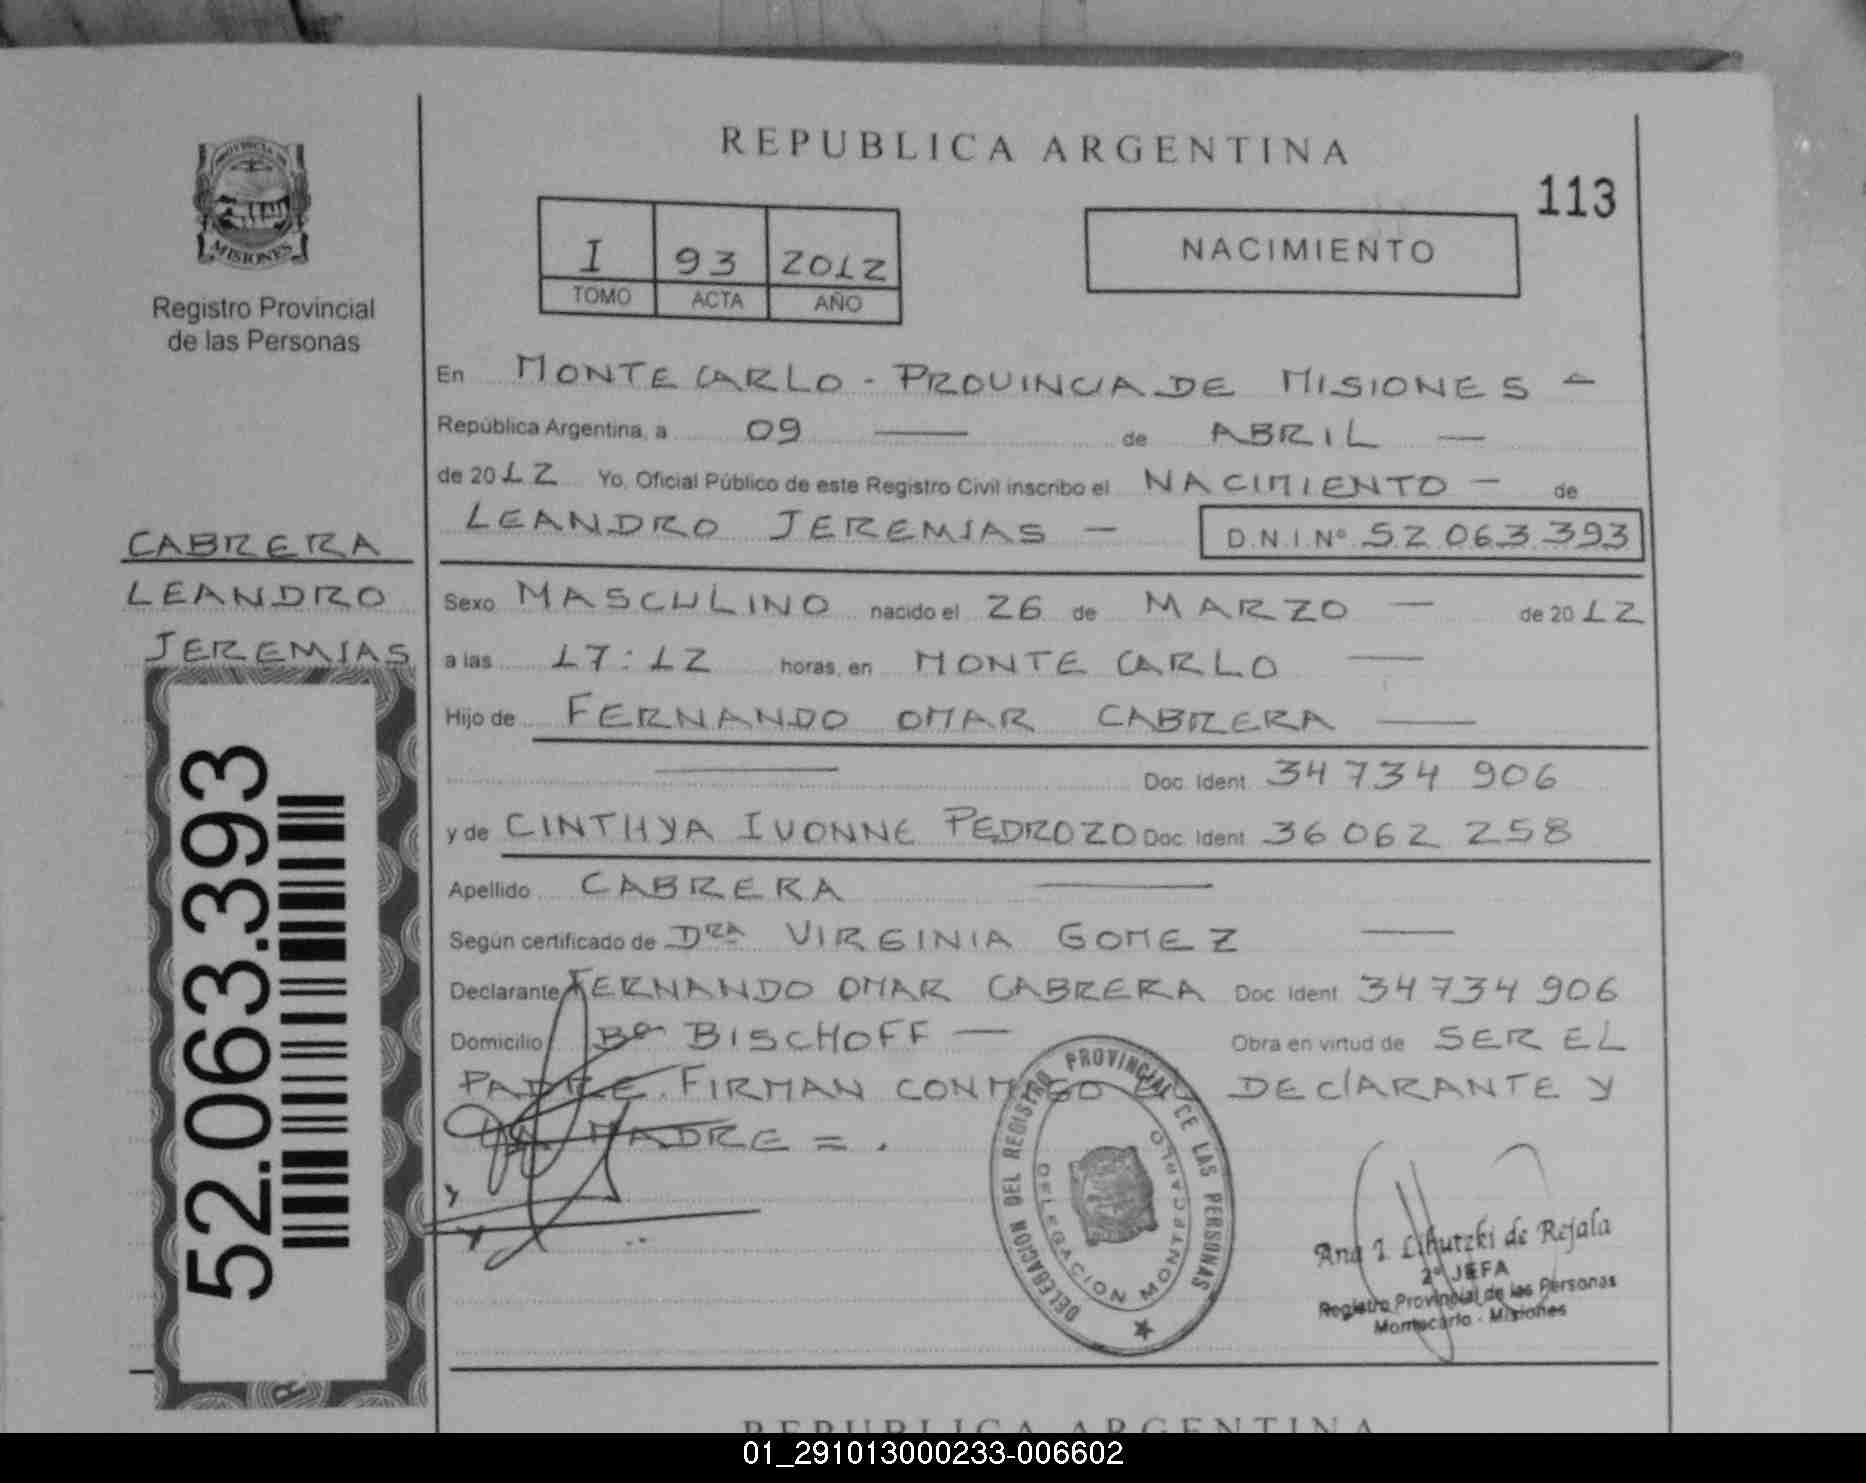 REPUBLICA ARGENTINA
113
PROVINCIA DE
MISIONES
Registro Provincial
de las Personas
I 93 2012
TOMO ACTA AÑO
NACIMIENTO
En MONTECARLO - PROVINCIA DE MISIONES -
República Argentina, a 09 — de ABRIL —
de 2012 Yo, Oficial Público de este Registro Civil inscribo el NACIMIENTO - de
LEANDRO JEREMIAS - D.N.I.Nº 52.063.393
CABRERA
LEANDRO
JEREMIAS
Sexo MASCULINO nacido el 26 de MARZO — de 2012
a las 17:12 horas, en MONTE CARLO —
Hijo de FERNANDO OMAR CABRERA —
— Doc. Ident. 34 734 906
y de CINTHYA IVONNE PEDROZO Doc. Ident. 36 062 258
Apellido CABRERA —
Según certificado de DRA VIRGINIA GOMEZ —
Declarante FERNANDO OMAR CABRERA Doc. Ident. 34 734 906
Domicilio Bº BISCHOFF — Obra en virtud de SER EL
PADRE. FIRMAN CONMIGO EL DECLARANTE Y
LA MADRE = .
52.063.393
DELEGACION DEL REGISTRO PROVINCIAL DE LAS PERSONAS
DELEGACION MONTECARLO
Ana I. de Rejala
2º JEFA
Registro Provincial de las Personas
Montecarlo - Misiones
REPUBLICA ARGENTINA
01_291013000233-006602